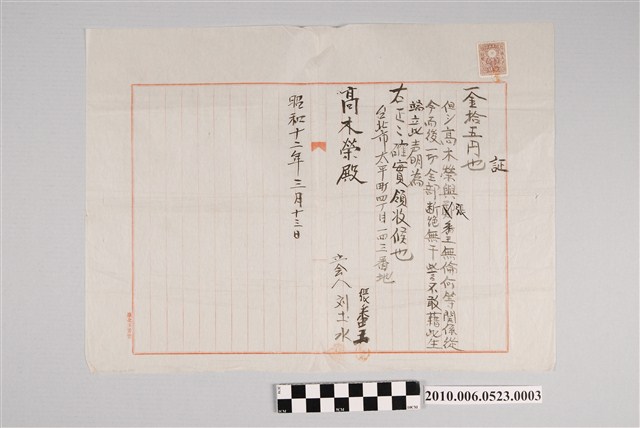 証
一金拾五円也
但シ高木榮與張番王無倫何等関係從
今而後一切全部断絶無干些言不敢藉此生
端立此声明為
右正ニ確實領收候也
台北市太平町四丁目一四三番地
張番王
立会人 刘土水
高木榮殿
昭和十二年三月十三日
2010.006.0523.0003